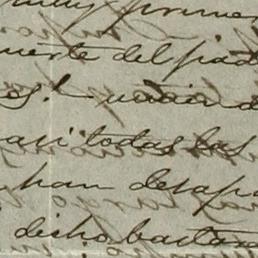 muy prime
muerte del pad
os!
casi todas las
han desapa
dicho bastan